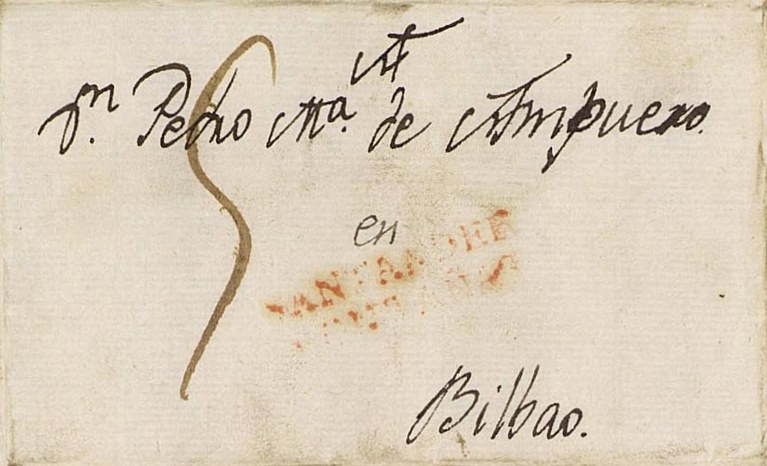 A
Dn. Pedro Ma. de Ampuero.
en
SANTANDER
Bilbao.